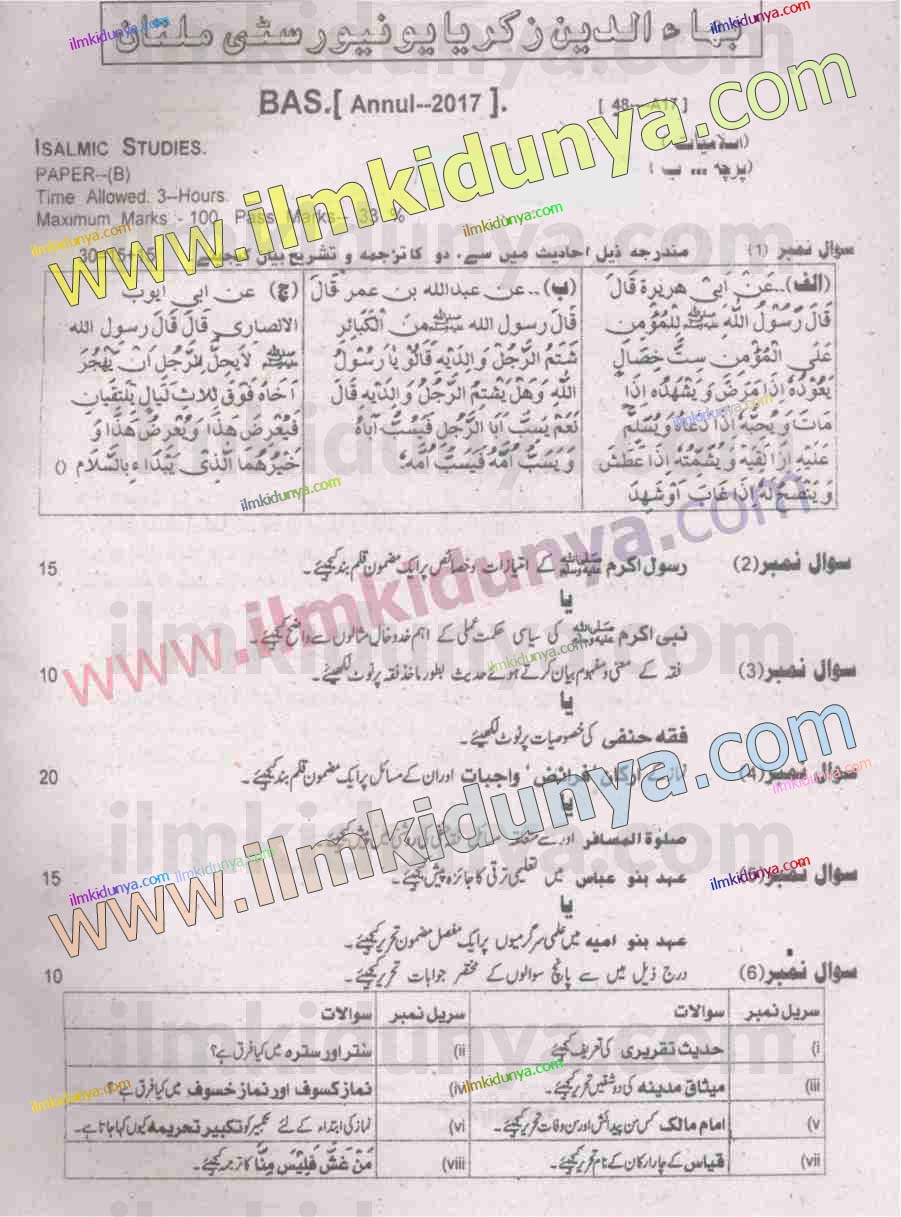 بہاء الدین زکریا یونیورسٹی ملتان
BAS.[ Annul--2017 ]. [ 48----A17 ]
ISALMIC STUDIES. (اسلامیات)
PAPER--(B) (پرچہ ... ب)
Time Allowed. 3--Hours.
Maximum Marks - 100, Pass Marks-- 33 %
سوال نمبر (1) مندرجہ ذیل احادیث میں سے، دو کا ترجمہ و تشریح بیان کیجیئے 30=15+15
(الف)..عَنْ اَبِیْ هریرة قَالَ
قَالَ رَسُوْلُ اللّٰهِ ﷺ لِلْمُؤْمِن
عَلَی الْمُؤْمِنِ سِتُّ خِصَالٍ
یَعُوْدُهٗ اِذَا مَرِضَ وَ یَشْهَدُهٗ اِذَا
مَاتَ وَ یُحِبُّهٗ اِذَا دَعَاهُ وَ یُسَلِّمُ
عَلَیْهِ اِذَا لَقِیَهٗ وَ یُشَمِّتُهٗ اِذَا عَطَسَ
وَ یَنْصَحُ لَهٗ اِذَا غَابَ اَوْ شَهِدَ
(ب)..عن عبدالله بن عمر قَالَ
قَالَ رسول الله ﷺ مِنَ الْکَبَائِرِ
شَتْمُ الرَّجُلِ وَالِدَیْهِ قَالُوْ یَا رَسُوْلُ
اللّٰهِ وَهَلْ یَشْتِمُ الرَّجُلُ وَالِدَیْهِ قَالَ
نَعَمْ یَسُبُّ اَبَا الرَّجُلِ فَیَسُبُّ اَبَاهُ
وَ یَسُبُّ اُمَّهٗ فَیَسُبُّ اُمَّهٗ۔
(ج) عن ابی ایوب
الانصاری قَالَ قَالَ رسول الله
ﷺ لَا یَحِلُّ لِلرَّجُلِ اَنْ یَّهْجُرَ
اَخَاهُ فَوْقَ ثَلَاثِ لَیَالٍ یَلْتَقِیَانِ
فَیُعْرِضُ هٰذَا وَ یُعْرِضُ هٰذَا وَ
خَیْرُهُمَا الَّذِیْ یَبْدَاءُ بِالسَّلَام ()
سوال نمبر(2) رسول اکرم ﷺ کے امتیازات و خصائص پر ایک مضمون قلم بند کیجیئے۔ 15
یا
نبی اکرم ﷺ کی سیاسی حکمت عملی کے اہم خدوخال مثالوں سے واضح کیجیئے۔
سوال نمبر(3) فقہ کے معنی و مفہوم بیان کرتے ہوئے حدیث بطور ماخذ فقہ پر نوٹ لکھیئے۔ 10
یا
فقه حنفی کی خصوصیات پر نوٹ لکھیئے۔
سوال نمبر(4) نماز کے ارکان' فرائض' واجبات اور ان کے مسائل پر ایک مضمون قلم بند کیجیئے۔ 20
یا
صلوة المسافر اور سے متعلقہ مسائل فقہ حنفی کی روشنی میں پیش کیجیئے۔
سوال نمبر(5) عہد بنو عباس میں تعلیمی ترقی کا جائزہ پیش کیجیئے۔ 15
یا
عہد بنو امیہ میں علمی سرگرمیوں پر ایک مفصل مضمون تحریر کیجیئے۔
سوال نمبر(6) درج ذیل میں سے پانچ سوالوں کے مختصر جوابات تحریر کیجیئے۔ 10
سریل نمبر سوالات سریل نمبر سوالات
(i حدیث تقریری کی تعریف کیجیئے (ii سَتر اور سترہ میں کیا فرق ہے؟
(iii میثاق مدینہ کی دو شقیں تحریر کیجیئے۔ (iv نماز کسوف اور نماز خسوف میں کیا فرق ہے؟
(v امام مالک کس سن پیدائش اور سن وفات تحریر کیجیئے۔ (vi نماز کی ابتداء کے لئے تکبیر کو تکبیر تحریمہ کیوں کہا جاتا ہے۔
(vii قیاس کے چار ارکان کے نام تحریر کیجیئے۔ (viii مَنْ غَشَّ فَلَیْسَ مِنَّا کا ترجمہ کیجیئے۔
www.ilmkidunya.com
www.ilmkidunya.com
www.ilmkidunya.com
ilmkidunya.com